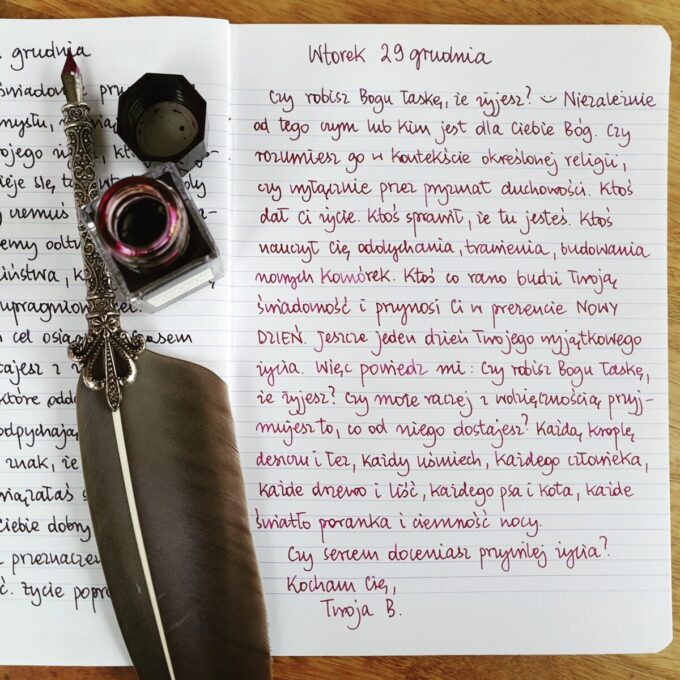 grudnia
mysłu,
ieje się
czemuś
emy odtw
ństwa, k
cel czasem
tajesz z
które odd
odpychają
znak, że
wiązałaś s
ciebie dobry
przeznaczen
ć. Życie popr
Wtorek 29 grudnia
Czy robisz Bogu łaskę, że żyjesz? :) Niezależnie
od tego czym lub kim jest dla Ciebie Bóg. Czy
rozumiesz go w kontekście określonej religii,
czy wyłącznie przez pryzmat duchowości. Ktoś
dał Ci życie. Ktoś sprawił, że tu jesteś. Ktoś
nauczył Cię oddychania, trawienia, budowania
nowych komórek. Ktoś co rano budzi Twoją
świadomość i przynosi Ci w prezencie NOWY
DZIEŃ. Jeszcze jeden dzień Twojego wyjątkowego
życia. Więc powiedz mi: Czy robisz Bogu łaskę,
że żyjesz? Czy może raczej z wdzięcznością przyj-
mujesz to, co od niego dostajesz? Każdą kroplę
deszczu i łez, każdy uśmiech, każdego człowieka,
każde drzewo i liść, każdego psa i kota, każde
światło poranka i ciemność nocy.
Czy sercem doceniasz przywilej życia?
Kocham Cię,
Twoja B.